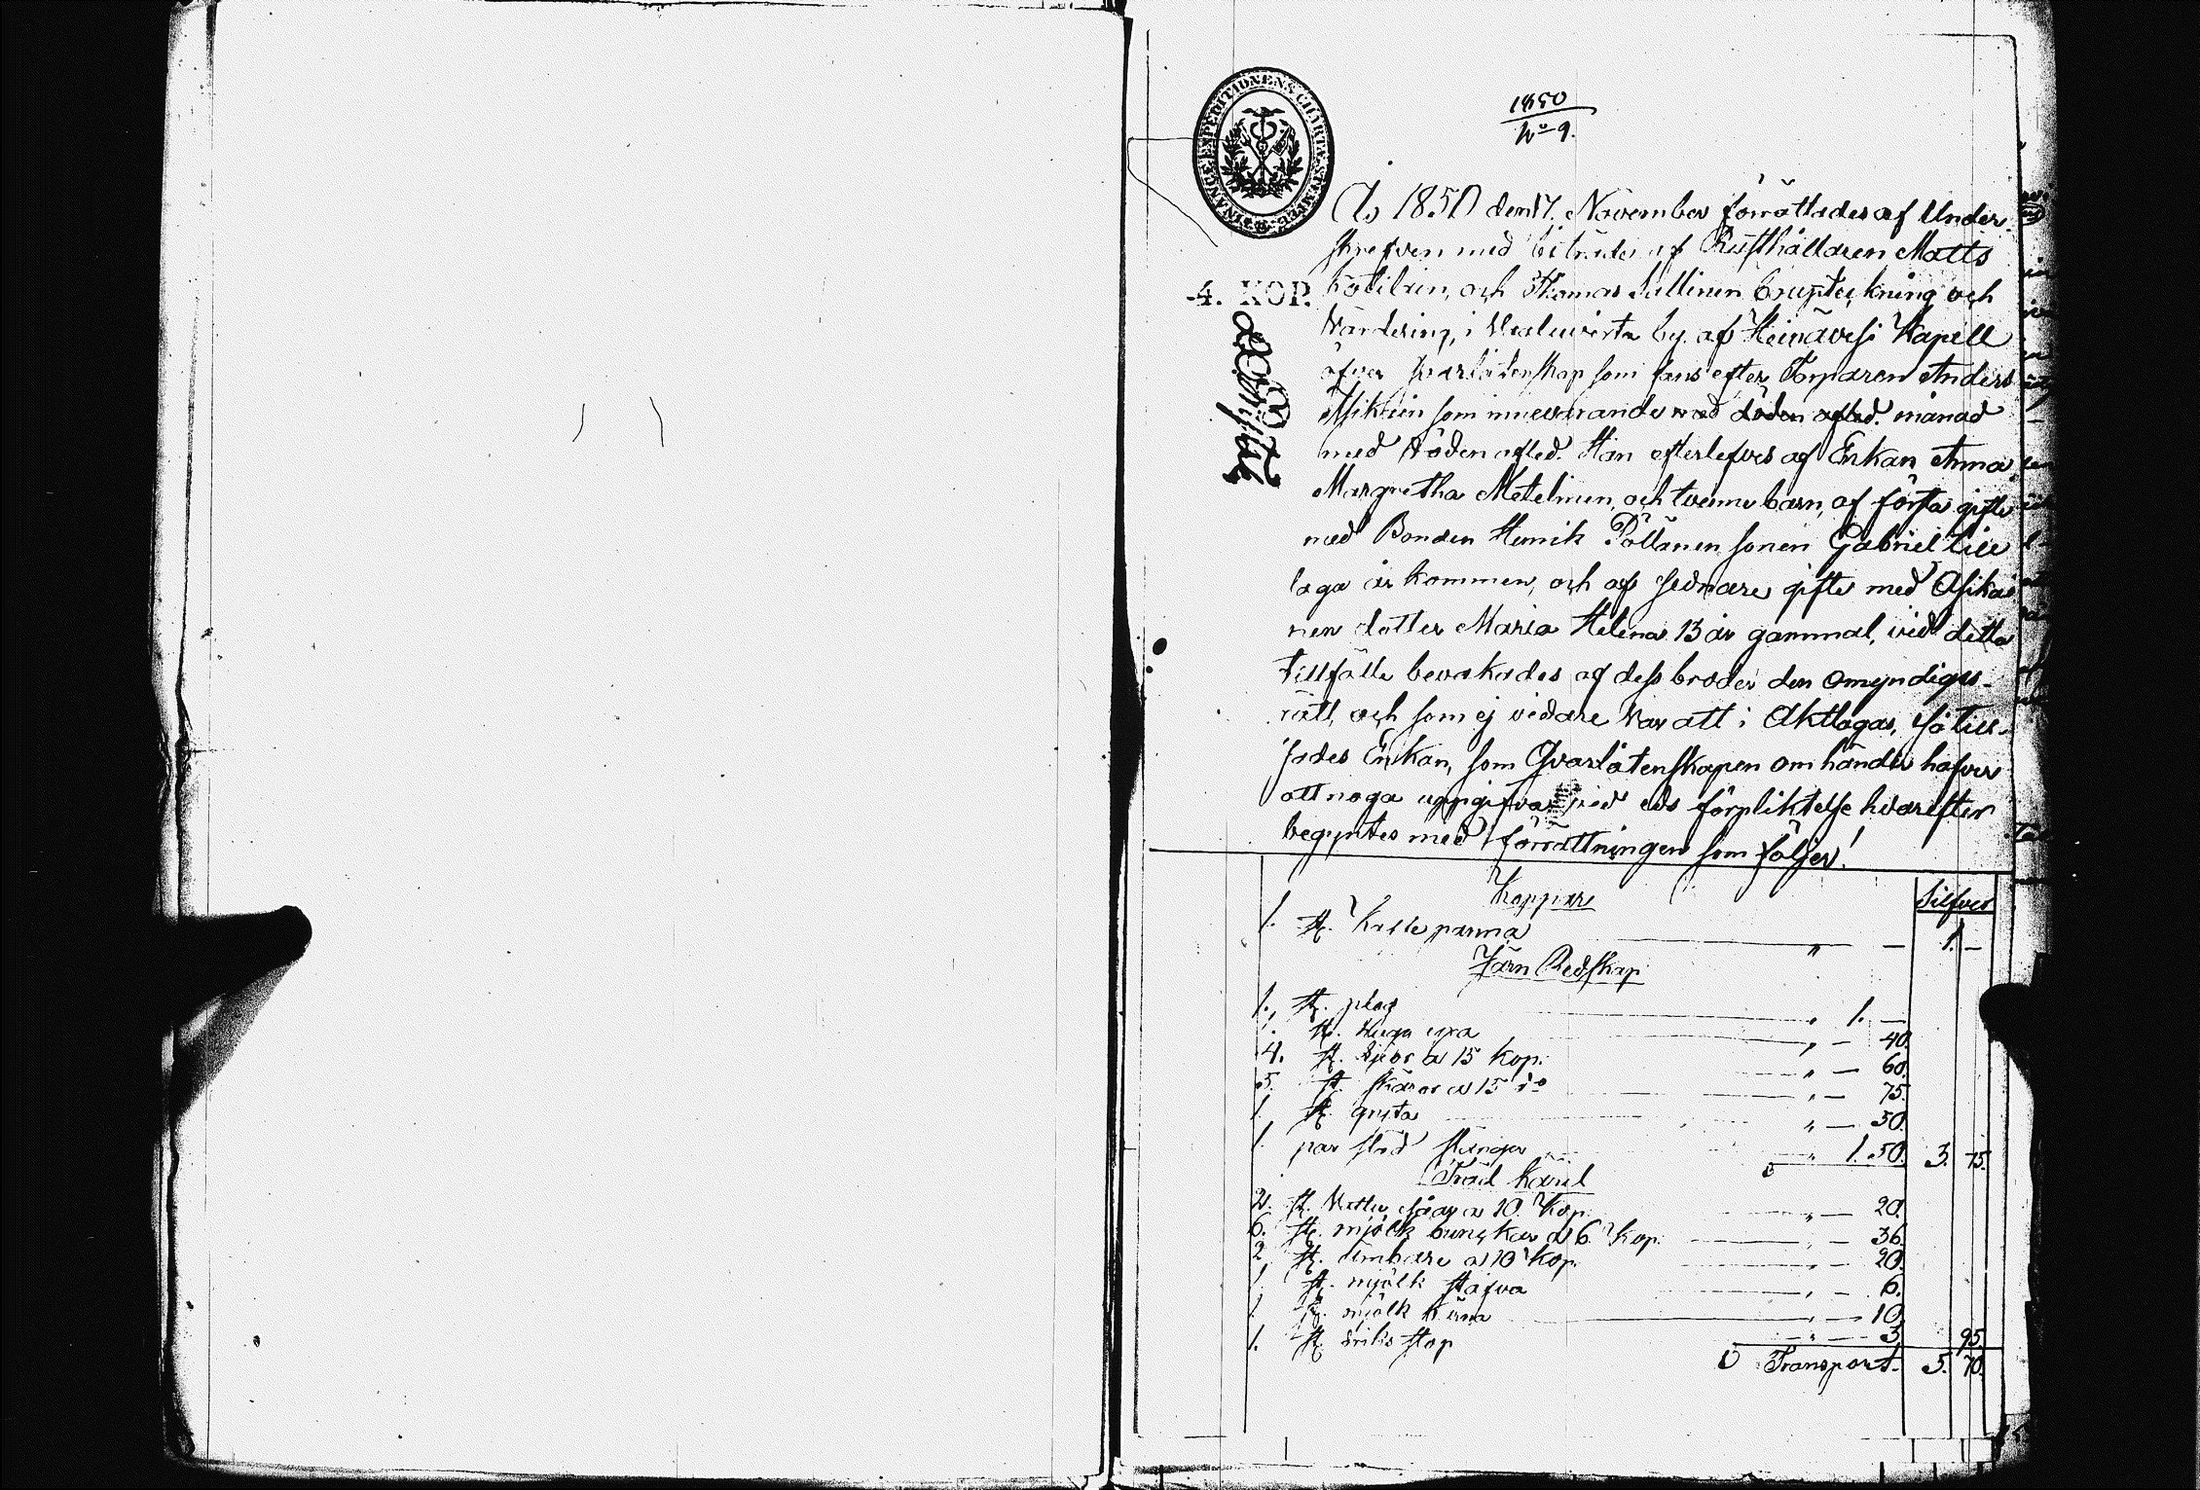 FINANCE-EXPEDITIONENS CHARTÆ STÄMPEL
1850
No 9.
4. KOP.
År 1850 den 17. November förrättades af Under-
skrefven med biträde af Rusthållaren Matts
och Thomas Sallinen bouptekning och
Värdering, i by. af Heinävesi Kapell
öfver qvarlåtenskap som fans efter Torparen Anders
Asikain som innevarande med döden afled. månad
med döden afled. Han efterlefves af Enkan Anna
Margretha Metelinen, och tvenne barn, af första gifte
med Bonden Henrik Pöllänen sonen Gabriel till
laga år kommen, och af sednare gifte med Asikai
nen dotter Maria Helena 13 år gammal, vid detta
tillfälle bevakades af dess broder den omyndiges
rätt, och som ej vidare var att i Akttagas, så till-
sades Enkan, som Qvarlåtenskapen om händer hafver
att noga uppgifva vid eds förpliktelse hvarefter
begyntes med förrättningen som följer!
Koppar Silfver
1. st. Kaffe panna " — 1. —
Järn Redskap
1. st. plog " 1. —
1. st. yxa " — 40.
4. st. a 15 Kop. " — 60.
5. st. skäror a 15 do " — 75.
1. st. gryta " — 50.
1. par stänger " 1. 50. 3. 75.
Träd Käril
2. st. Vatten såar a 10. Kop. " — 20.
6. st. mjölk bunckar a 6. Kop. " — 36.
2 st. ämbare a 10 Kop. " — 20.
1. st. mjölk stäfva " — 6.
1. st. mjölk Kärna " — 10.
1. st. driks stop " — 3. 95.
Transport. 5. 70.